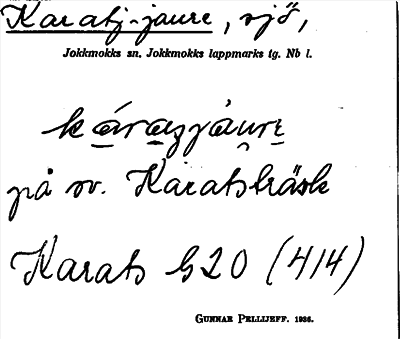 Karatj-jaure, sjö,
Jokkmokks sn. Jokkmokks lappmarks tg. Nb l.
kározjáurε
på sv. Karatsträsk
Karats G20 (414)
GUNNAR PELLIJEFF. 1936.